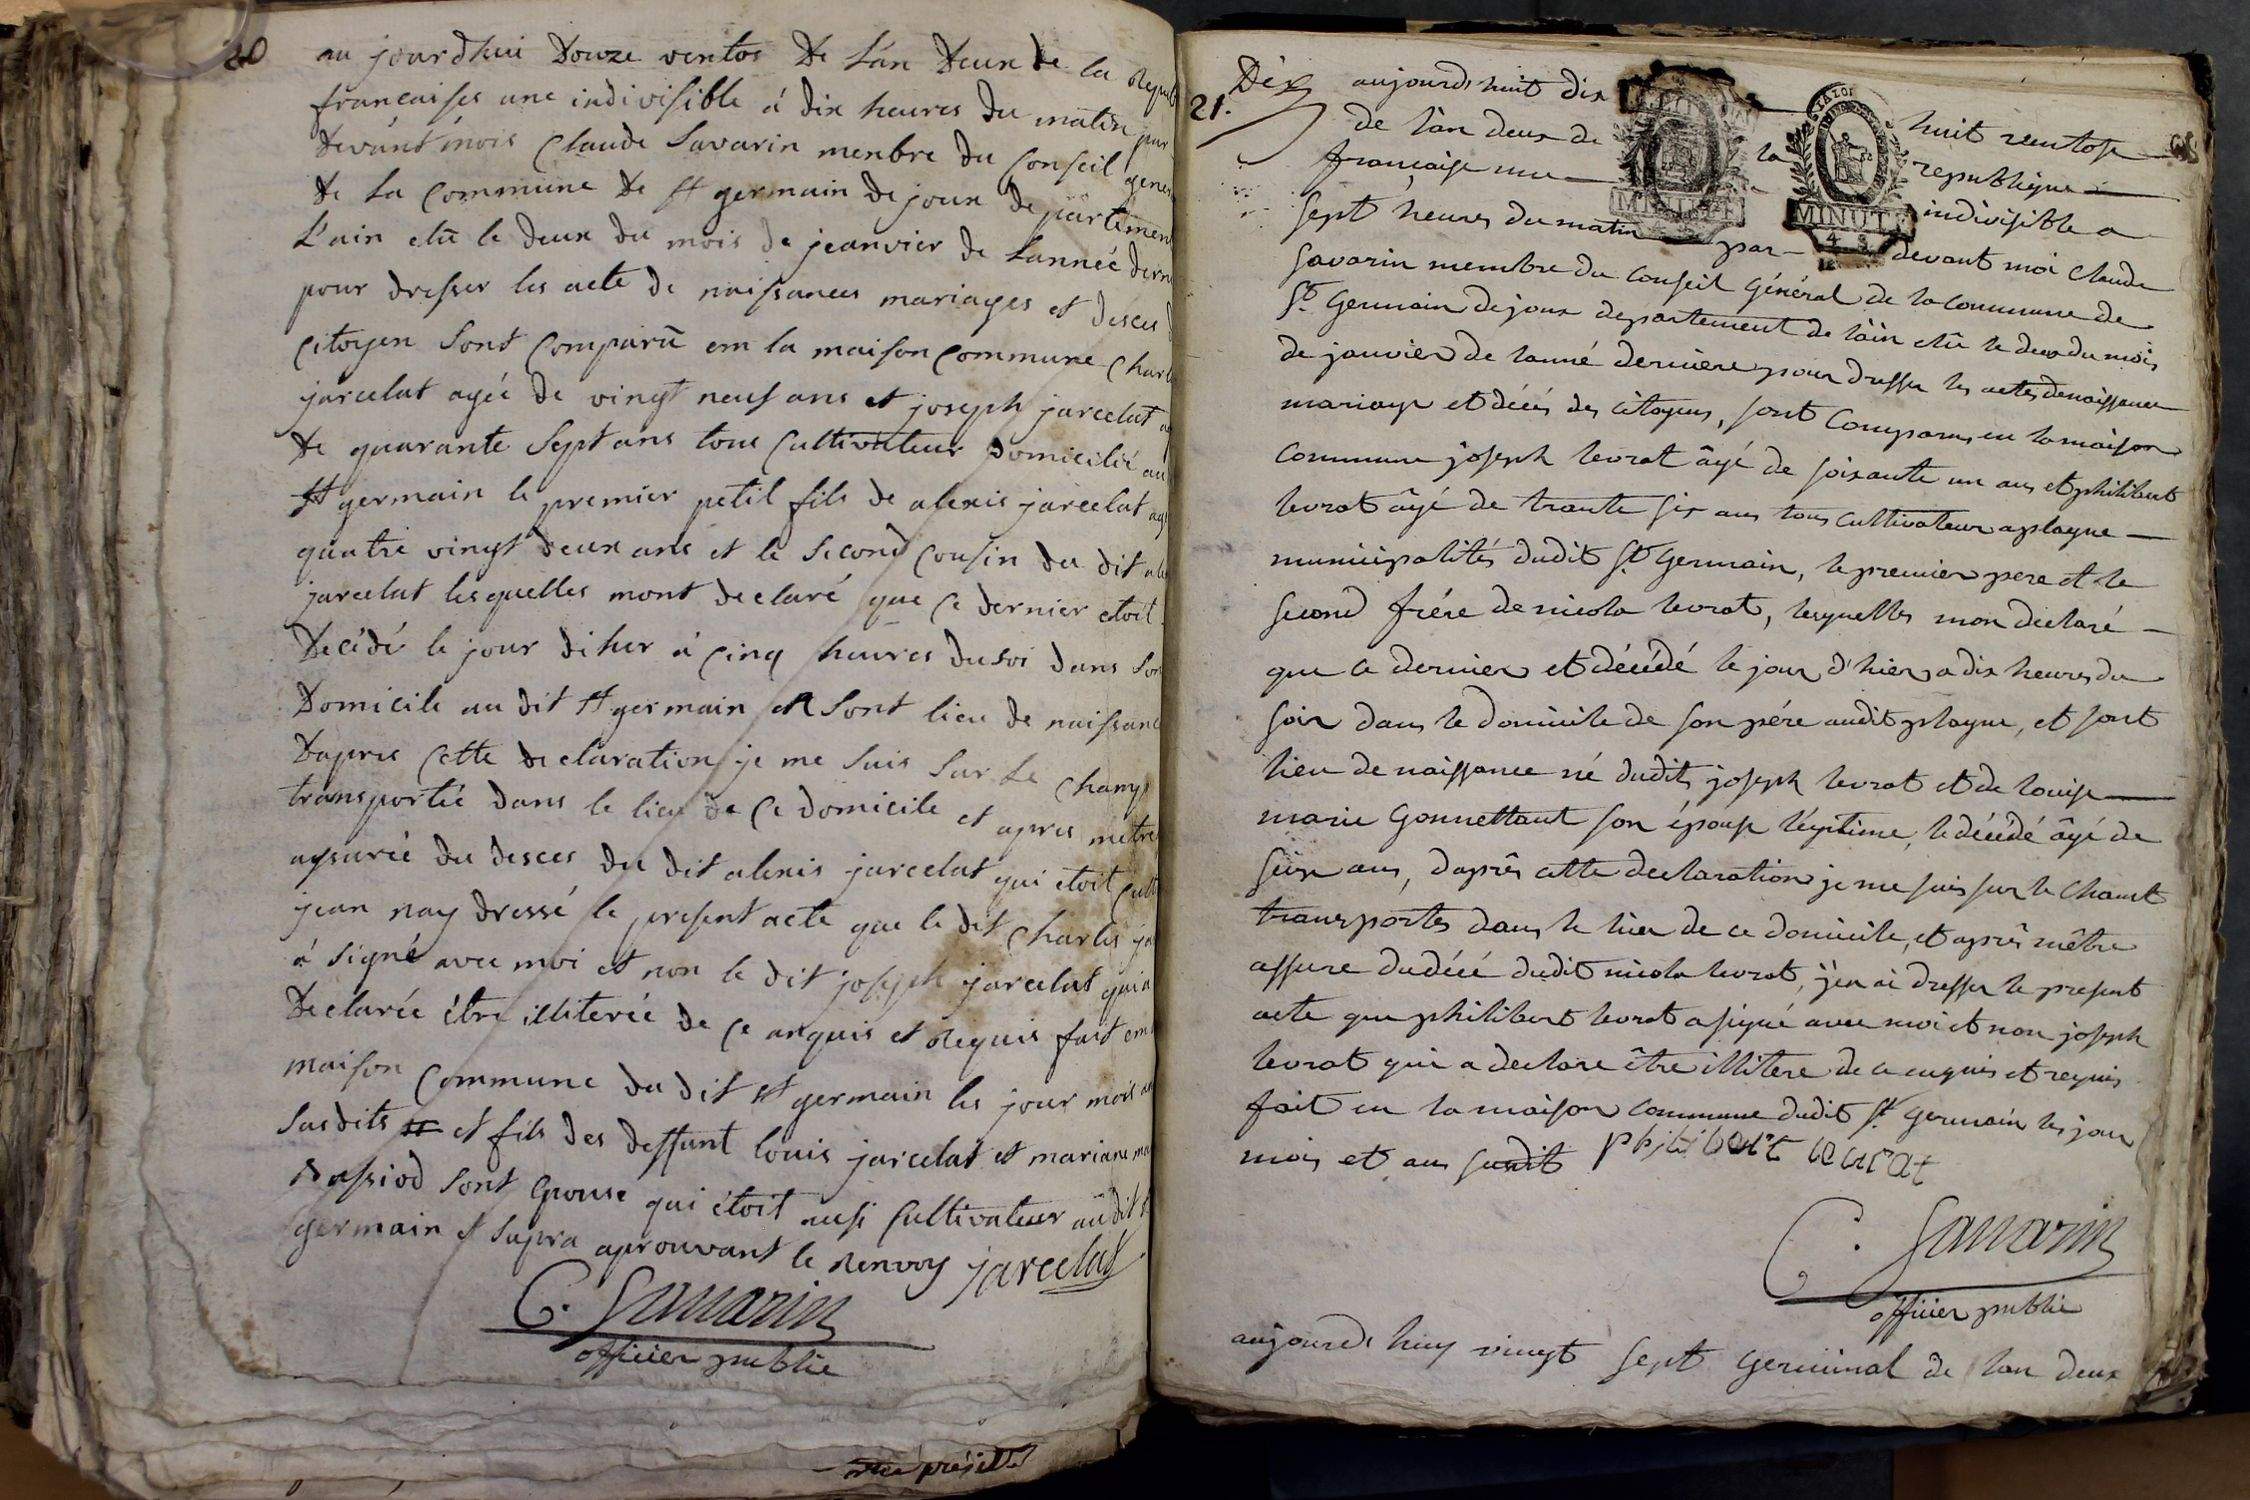 20 au jourdhui Douze ventos De Lán Deux De la Repub
francaises une indivisible á dix heures Du matin par
Devánt mois Claude Savarin menbre Du Conseil gener
De La Commune De st germain De joux De partemen
L'ain elû le Deux Du mois De jeanvier De Lannéé Dern
pour Dresser les acte De naissances mariages et Desces D
Citoyen Sont Comparû em la maison Commune Charl
jarcelat agéé De vingt neuf ans et joseph jarcelat a
De quarante Sept ans tous Cultivateur Domicilié au
st germain le premier petil fils De alexis jarcelat ag
quatre vingt Deux ans et le Second Cousin Du Dit al
jarcelat les quelles mont De claré que Ce Dernier etoit
Decédé le jour Diher á Cinq heures Du soi Dans Son
Domicile au Dit st germain et Sont lieu De naissance
Dapres Cette De claration je me Suis Sur Le Champ
transportéé Dans le lieu De Ce Domicile et apres metre
assuréé Du Desces Du Dit alexis jarcelat qui etoit Cult
jean nay Dressé le present acte que le Dit Charles ja
á Signé avec moi et non le Dit joseph jarcelat qui a
De claréé être illiteréé De Ce anquis et Requis fait em
maison Commune Du Dit st germain les jour mois an
Susdits # et fils Des Deffunt louis jarcelat et mariane ma
Dassiod Sont Epouse qui étoit ausi Cultivateur au Dit s
germain et Supra aprouvant le Renvoy jarcelat
C. Savarin
officier public
Dix aujourdhuit dix huit ventose
21. de l'àn deux de la republique
francaise une indivisible a
sept heures du matin par devant moi Claude
MINUTE
MINUTE
Savarin membre du Conseil Général de la Commune de
St. Germain dejoux departement de l'àin elû le deux du mois
de janvier de lanné derniere pour dresser les actes denaissance
mariage et décés des citoyens, sont Comparus en la maison
Commune joseph levrat âgé de soixante un ans et philibert
levrat âgé de trante six ans tous Cultivateur a plagne
municipalités dudit St. Germain, le premier pere et le
second frére de nicola levrat, lesquelles mon declaré
que ce dernier et décédé le jour d'hier a dix heures du
soir dans le domicile de son pére audit plagne, et sont
lieu de naissance né dudit joseph levrat et de louise
marie Gonnettant son épouse légitime, le décédé âgé de
seize ans, d'aprês cette declaration je me suis sur le Chant
transportes dans le lieu de ce domicile, et aprês mêtre
assure dudécé dudit nicola levrat, j'en ai dresser le present
acte que philibert levrat a signé avec moi et non joseph
levrat qui a declare être illitere de ce enquis et requis
fait en la maison commune dudit St Germain les jour
mois et an susdit philibert leurat
C. Savarin
officier public
aujourd'huy vingt sept Germinal de lan deux